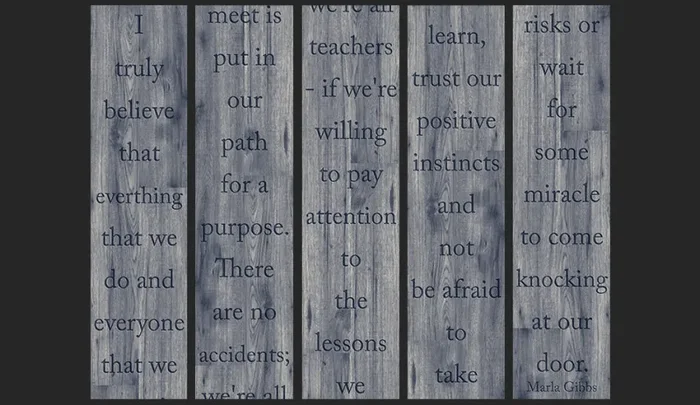 I
truly
believe
that
everthing
that we
do and
everyone
that we
meet is
put in
our
path
for a
purpose.
There
are no
accidents;
we're all
we're all
teachers
- if we're
willing
to pay
attention
to
the
lessons
we
learn,
trust our
positive
instincts
and
not
be afraid
to
take
risks or
wait
for
some
miracle
to come
knocking
at our
door.
Marla Gibbs